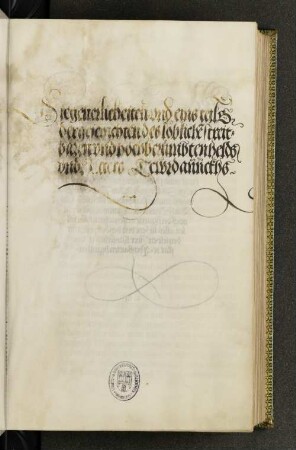 Die geuerlicheiten vnd eins teils
der geschichten des loblichen streit
paren vnd hochberümbten helds
vnd Ritters Tewrdannckhs